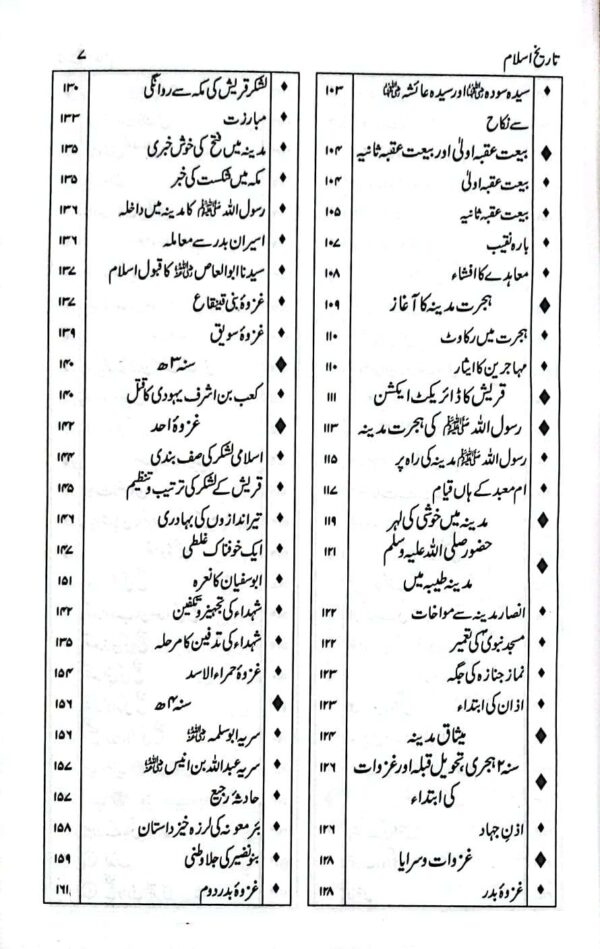 تاریخ اسلام ۷
سیدہ سودہ ؓ اور سیدہ عائشہ ؓ ۱۰۳
سے نکاح
بیعت عقبہ اولیٰ اور بیعت عقبہ ثانیہ ۱۰۴
بیعت عقبہ اولیٰ ۱۰۴
بیعت عقبہ ثانیہ ۱۰۵
بارہ نقیب ۱۰۷
معاہدے کا افشاء ۱۰۸
ہجرت مدینہ کا آغاز ۱۰۹
ہجرت میں رکاوٹ ۱۱۰
مہاجرین کا ایثار ۱۱۰
قریش کا ڈائریکٹ ایکشن ۱۱۱
رسول اللہ ﷺ کی ہجرت مدینہ ۱۱۳
رسول اللہ ﷺ مدینہ کی راہ پر ۱۱۵
ام معبد کے ہاں قیام ۱۱۷
مدینہ میں خوشی کی لہر ۱۱۹
حضور صلی اللہ علیہ وسلم ۱۲۱
مدینہ طیبہ میں
انصار مدینہ سے مواخات ۱۲۲
مسجد نبوی کی تعمیر ۱۲۲
نماز جنازہ کی جگہ ۱۲۳
اذان کی ابتداء ۱۲۳
میثاق مدینہ ۱۲۴
سنہ ۲ ہجری، تحویل قبلہ اور غزوات ۱۲۶
کی ابتداء
اذنِ جہاد ۱۲۶
غزوات و سرایا ۱۲۸
غزوۂ بدر ۱۲۸
لشکر قریش کی مکہ سے روانگی ۱۳۰
مبارزت ۱۳۳
مدینہ میں فتح کی خوش خبری ۱۳۵
مکہ میں شکست کی خبر ۱۳۵
رسول اللہ ﷺ کا مدینہ میں داخلہ ۱۳۶
اسیران بدر سے معاملہ ۱۳۶
سیدنا ابوالعاص ؓ کا قبول اسلام ۱۳۷
غزوۂ بنی قینقاع ۱۳۷
غزوۂ سویق ۱۳۹
سنہ ۳ھ ۱۴۰
کعب بن اشرف یہودی کا قتل ۱۴۰
غزوۂ احد ۱۴۲
اسلامی لشکر کی صف بندی ۱۴۴
قریش کے لشکر کی ترتیب و تنظیم ۱۴۵
تیر اندازوں کی بہادری ۱۴۶
ایک خوفناک غلطی ۱۴۷
ابو سفیان کا نعرہ ۱۵۱
شہداء کی تجہیز و تکفین ۱۴۲
شہداء کی تدفین کا مرحلہ ۱۳۵
غزوہ حمراء الاسد ۱۵۴
سنہ ۴ھ ۱۵۶
سریہ ابو سلمہ ؓ ۱۵۶
سریہ عبداللہ بن انیس ؓ ۱۵۷
حادثۂ رجیع ۱۵۷
بئر معونہ کی لرزہ خیز داستان ۱۵۸
بنو نضیر کی جلا وطنی ۱۵۹
غزوۂ بدر دوم ۱۶۱